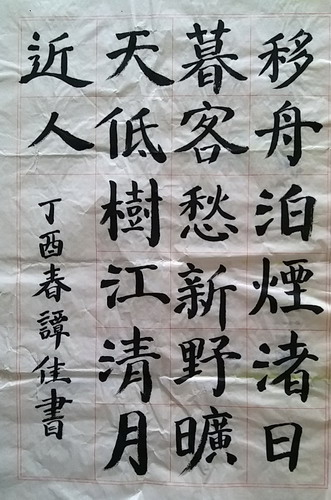 移舟泊煙渚日
暮客愁新野曠
天低樹江清月
近人
丁酉春譚佳書